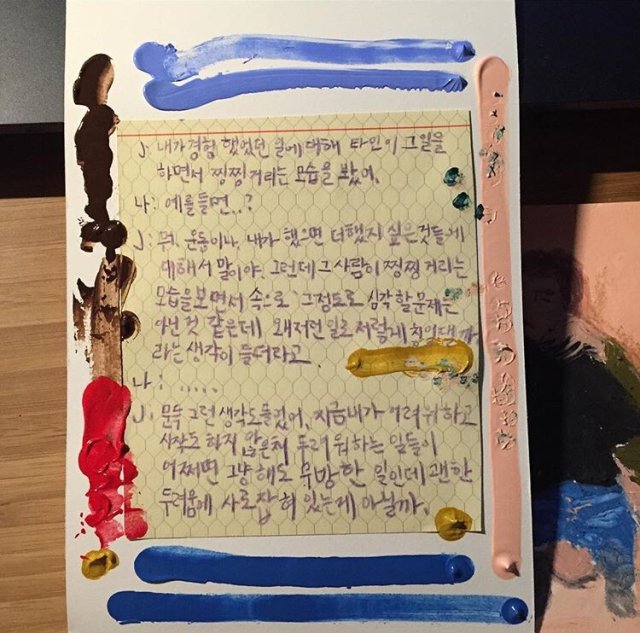 J: 내가 경험 했었던 일에 대해 타인이 그 일을
하면서 찡찡거리는 모습을 봤어.
나: 예를들면..?
J: 뭐, 운동이나, 내가 했으면 더했지 싶은것들에
대해서 말이야. 그런데 그 사람이 찡찡 거리는
모습을 보면서 속으로 그정도로 심각할 문제는
아닌 것 같은데 왜저런 일로 저렇게
라는 생각이 들더라고
나: .....
J: 문득 그런 생각도 들었어, 지금 내가 어려워하고
시작도 하지 않은채 두려워하는 일들이
어쩌면 그냥 해도 무방한 일인데 괜한
두려움에 사로잡혀 있는게 아닐까.